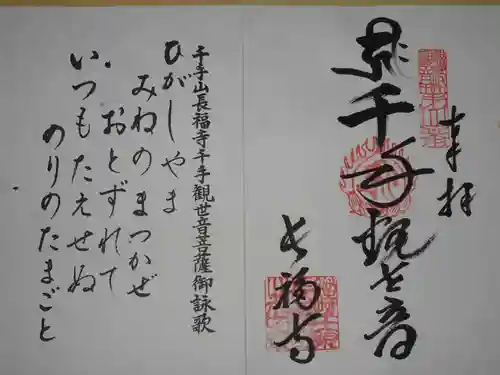 奉拝
千手観世音
長福寺
千手山長福寺千手観世音菩薩御詠歌
ひがしやま
みねのまつかぜ
おとずれて
いつもたえせぬ
のりのたまごと